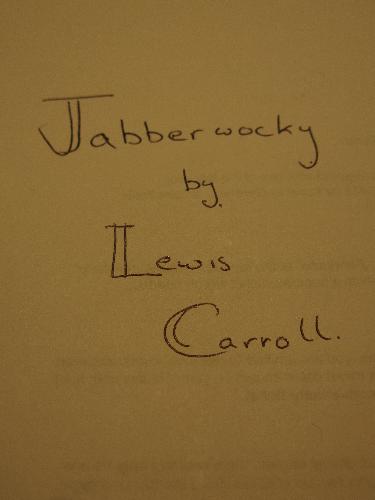 Jabberwocky
by
Lewis
Carroll.